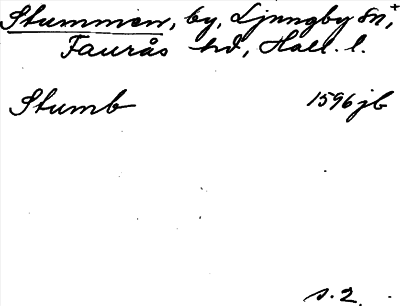 Stummen, by, Ljungby sn,+
Faurås hd, Hall. l.
Stumb 1596 jb
s. 2.